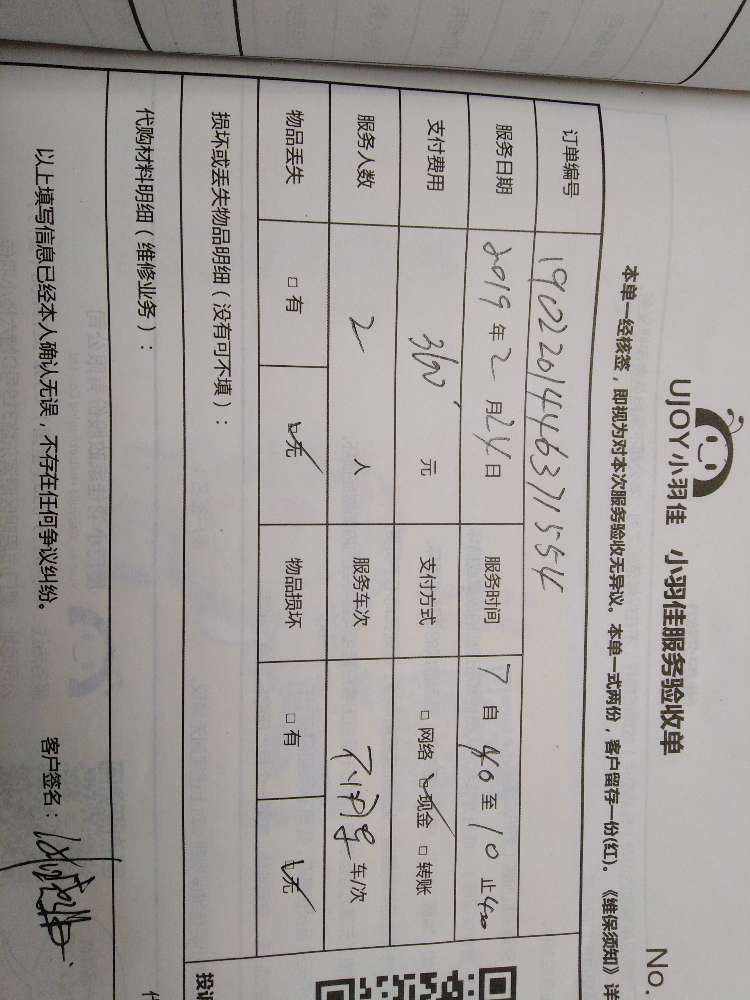 No.
UJOY小羽佳 小羽佳服务验收单
本单一经核签，即视为对本次服务验收无异议。本单一式两份，客户留存一份(红)。《维保须知》详
订单编号 1902201446371554
服务日期 2019年2月24日 服务时间 7自40至10止40
支付费用 360元 支付方式 □网络 ☑现金 □转账
服务人数 2人 服务车次 车/次
物品丢失 □有 ☑无 物品损坏 □有 ☑无
损坏或丢失物品明细（没有可不填）：
投诉
代购材料明细（维修业务）：
以上填写信息已经本人确认无误，不存在任何争议纠纷。 客户签名：